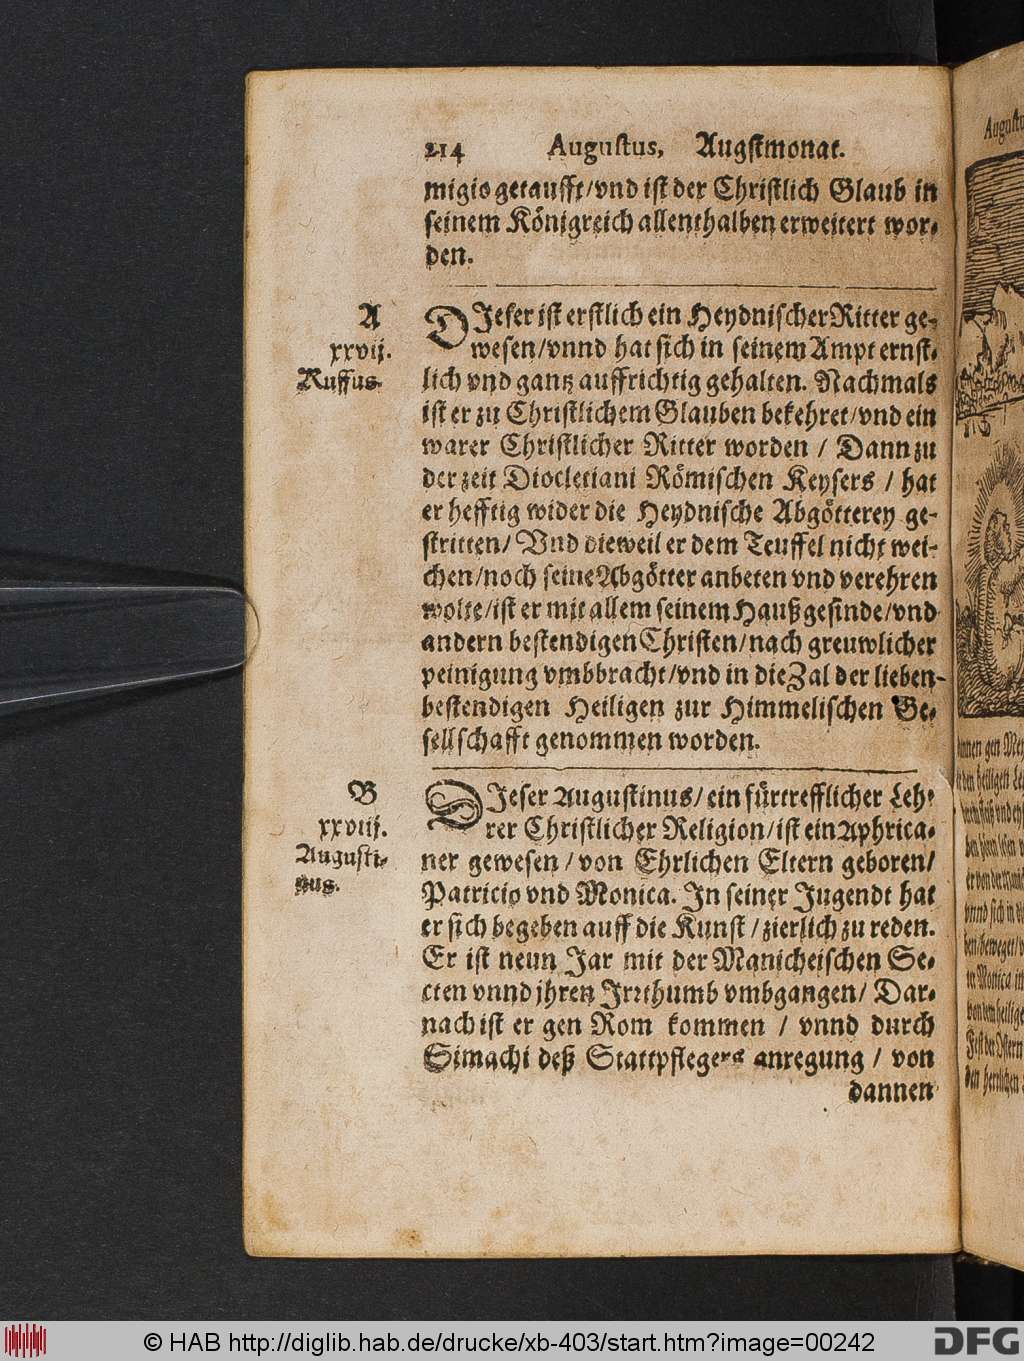 214 Augustus, Augstmonat.
migio getaufft/vnd ist der Christlich Glaub in
seinem Königreich allenthalben erweitert wor-
den.
A
xxvij.
Ruffus.
DJeser ist erstlich ein Heydnischer Ritter ge-
wesen/vnnd hat sich in seinem Ampt ernst-
lich vnd gantz auffrichtig gehalten. Nachmals
ist er zu Christlichem Glauben bekehret/vnd ein
warer Christlicher Ritter worden / Dann zu
der zeit Diocletiani Römischen Keysers / hat
er hefftig wider die Heydnische Abgötterey ge-
stritten/ Vnd dieweil er dem Teuffel nicht wei-
chen/noch seine Abgötter anbeten vnd verehren
wolte/ist er mit allem seinem Haußgesinde/vnd
andern bestendigen Christen/nach greuwlicher
peinigung vmbbracht/vnd in die Zal der lieben
bestendigen Heiligen zur Himmelischen Ge-
sellschafft genommen worden.
B
xxviij.
Augusti-
nus.
DJeser Augustinus/ein fürtrefflicher Leh-
rer Christlicher Religion/ist ein Aphrica-
ner gewesen / von Ehrlichen Eltern geboren/
Patricio vnd Monica. Jn seiner Jugendt hat
er sich begeben auff die Kunst / zierlich zu reden.
Er ist neun Jar mit der Manicheischen Se-
cten vnnd jhren Jrrthumb vmbgangen/ Dar-
nach ist er gen Rom kommen / vnnd durch
Simachi deß Stattpflegers anregung / von
dannen
© HAB http://diglib.hab.de/drucke/xb-403/start.htm?image=00242
DFG